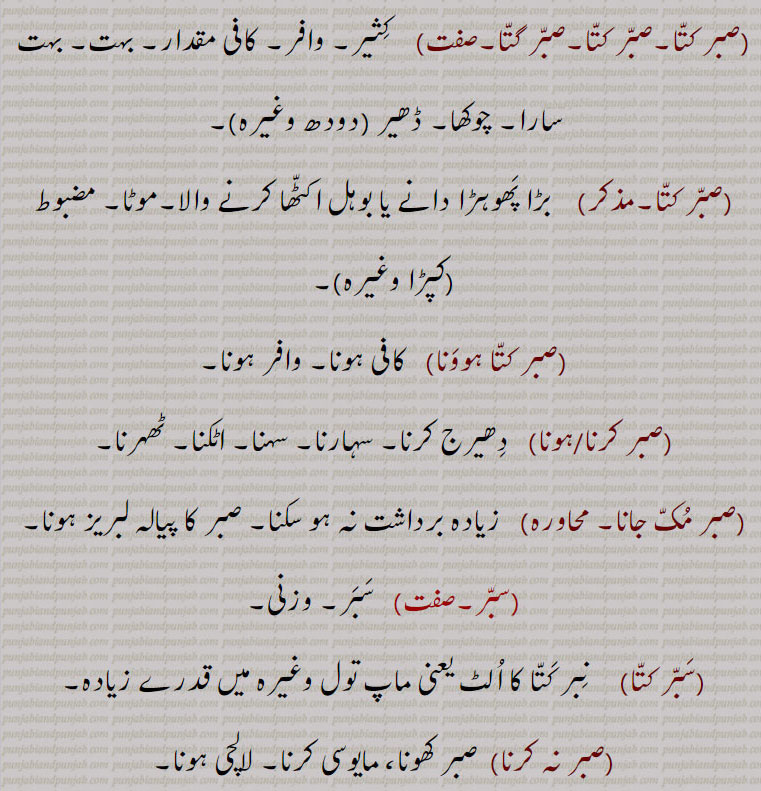 (صبر کتّا۔صبرّ کتّا۔صبرّ گتّا۔صفت) کِثیر۔ وافر۔ کافی مقدار۔ بہت۔ بہت
سارا۔ چوکھا۔ ڈھیر (دودھ وغیرہ)۔
(صبرّ کتّا۔مذکر) بڑا پَھوہڑا دانے یا بوہل اکٹھّا کرنے والا۔موٹا۔ مضبوط
(کپڑا وغیرہ)۔
(صبر کتّا ہووَنا) کافی ہونا۔ وافر ہونا۔
(صبر کرنا/ہونا) دِھیرج کرنا۔ سہارنا۔ سہنا۔ اٹکنا۔ ٹھہرنا۔
(صبر مُکّ جانا۔ محاورہ) زیادہ برداشت نہ ہو سکنا۔ صبر کا پیالہ لبریز ہونا۔
(سبرّ۔صفت) سَبَر۔ وزنی۔
(سَبرّ کتّا) نِبر کَتّا کا اُلٹ یعنی ماپ تول وغیرہ میں قدرے زیادہ۔
(صبر نہ کرنا) صبر کھونا، مایوسی کرنا۔ لالچی ہونا۔